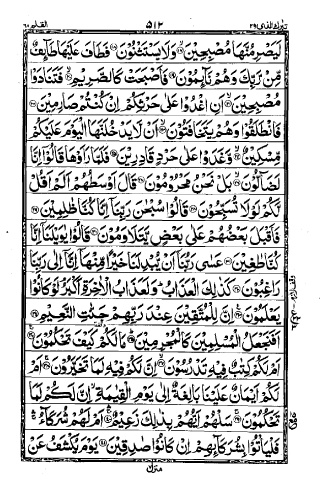 القلم ٦٨ ٥١٢ تبارك الذى ٢٩
لَيَصْرِمُنَّهَا مُصْبِحِيْنَ ۙ وَلَا يَسْتَثْنُوْنَ فَطَافَ عَلَيْهَا طَآئِفٌ
مِّنْ رَّبِّكَ وَهُمْ نَآئِمُوْنَ فَاَصْبَحَتْ كَالصَّرِيْمِ ۙ فَتَنَادَوْا
مُصْبِحِيْنَ ۙ اَنِ اغْدُوْا عَلٰى حَرْثِكُمْ اِنْ كُنْتُمْ صٰرِمِيْنَ
فَانْطَلَقُوْا وَهُمْ يَتَخَافَتُوْنَ ۙ اَنْ لَّا يَدْخُلَنَّهَا الْيَوْمَ عَلَيْكُمْ
مِّسْكِيْنٌ ۙ وَّغَدَوْا عَلٰى حَرْدٍ قٰدِرِيْنَ فَلَمَّا رَاَوْهَا قَالُوْٓا اِنَّا
لَضَآلُّوْنَ ۙ بَلْ نَحْنُ مَحْرُوْمُوْنَ قَالَ اَوْسَطُهُمْ اَلَمْ اَقُلْ
لَّكُمْ لَوْلَا تُسَبِّحُوْنَ قَالُوْا سُبْحٰنَ رَبِّنَآ اِنَّا كُنَّا ظٰلِمِيْنَ
فَاَقْبَلَ بَعْضُهُمْ عَلٰى بَعْضٍ يَّتَلَاوَمُوْنَ قَالُوْا يٰوَيْلَنَآ اِنَّا
كُنَّا طٰغِيْنَ عَسٰى رَبُّنَآ اَنْ يُّبْدِلَنَا خَيْرًا مِّنْهَآ اِنَّآ اِلٰى رَبِّنَا
رٰغِبُوْنَ كَذٰلِكَ الْعَذَابُ ؕ وَلَعَذَابُ الْاٰخِرَةِ اَكْبَرُ ۘ لَوْ كَانُوْا
يَعْلَمُوْنَ اِنَّ لِلْمُتَّقِيْنَ عِنْدَ رَبِّهِمْ جَنّٰتِ النَّعِيْمِ
اَفَنَجْعَلُ الْمُسْلِمِيْنَ كَالْمُجْرِمِيْنَ ؕ مَا لَكُمْ كَيْفَ تَحْكُمُوْنَ ۚ
اَمْ لَكُمْ كِتٰبٌ فِيْهِ تَدْرُسُوْنَ ۙ اِنَّ لَكُمْ فِيْهِ لَمَا تَخَيَّرُوْنَ ۚ اَمْ
لَكُمْ اَيْمَانٌ عَلَيْنَا بَالِغَةٌ اِلٰى يَوْمِ الْقِيٰمَةِ ۙ اِنَّ لَكُمْ لَمَا
تَحْكُمُوْنَ ۚ سَلْهُمْ اَيُّهُمْ بِذٰلِكَ زَعِيْمٌ ۚ اَمْ لَهُمْ شُرَكَآءُ ۚ
فَلْيَاْتُوْا بِشُرَكَآئِهِمْ اِنْ كَانُوْا صٰدِقِيْنَ يَوْمَ يُكْشَفُ عَنْ
منزل